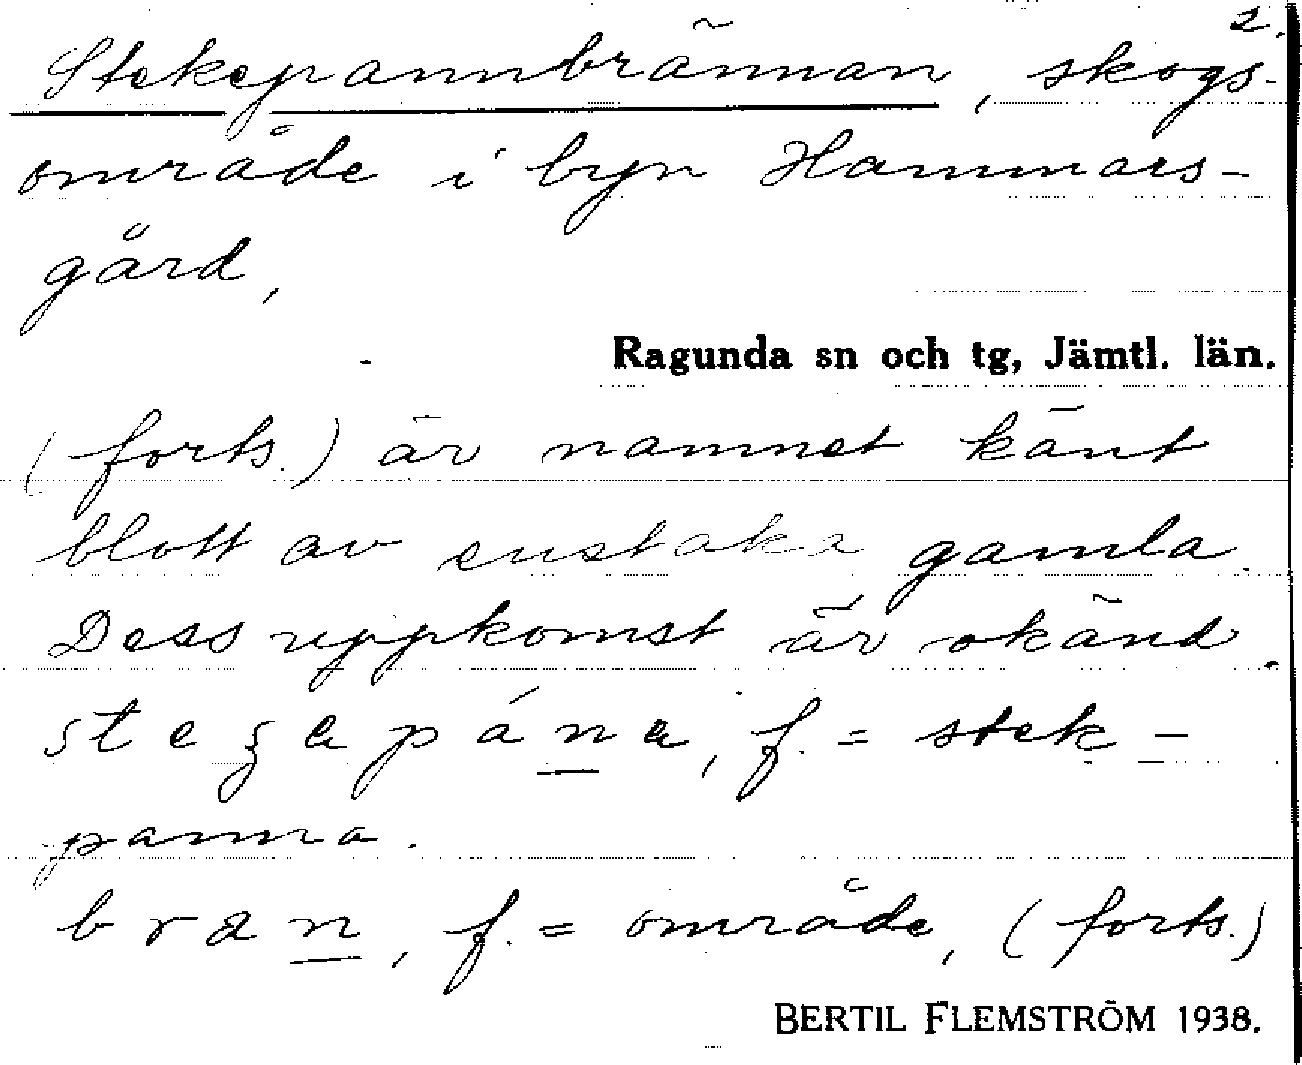 2.
Stekepannbrännan, skogs-
område i byn Hammars-
gård,
Ragunda sn och tg, Jämtl. län.
(forts.) är namnet känt
blott av enstaka gamla.
Dess uppkomst är okänd.
f. = stek-
panna.
f. = område, (forts.)
BERTIL FLEMSTRÖM 1938.